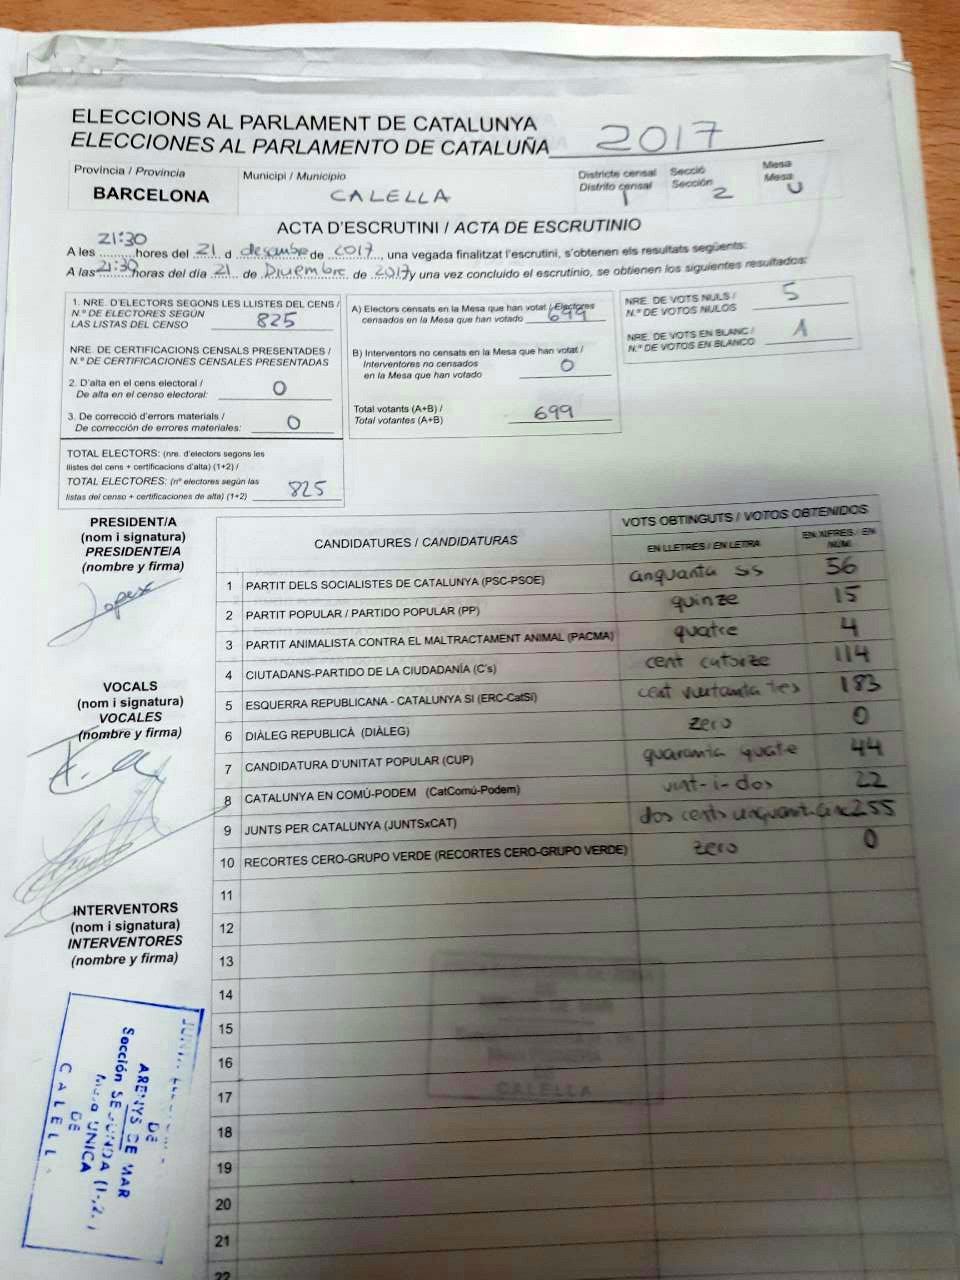 ELECCIONS AL PARLAMENT DE CATALUNYA
ELECCIONES AL PARLAMENTO DE CATALUÑA 2017
Provincia / Provincia
BARCELONA
Municipi / Municipio
CALELLA
Districte censal
Distrito censal
1
Secció
Sección
2
Mesa
Mesa
U
ACTA D'ESCRUTINI / ACTA DE ESCRUTINIO
A les 21:30 hores del 21 d desembre de 2017, una vegada finalitzat l'escrutini, s'obtenen els resultats següents:
A las 21:30 horas del día 21 de Diciembre de 2017 y una vez concluido el escrutinio, se obtienen los siguientes resultados:
1. NRE. D'ELECTORS SEGONS LES LLISTES DEL CENS /
N.º DE ELECTORES SEGÚN
LAS LISTAS DEL CENSO 825
NRE. DE CERTIFICACIONS CENSALS PRESENTADES /
N.º DE CERTIFICACIONES CENSALES PRESENTADAS
2. D'alta en el cens electoral /
De alta en el censo electoral: 0
3. De correcció d'errors materials /
De corrección de errores materiales: 0
TOTAL ELECTORS: (nre. d'electors segons les
llistes del cens + certificacions d'alta) (1+2) /
TOTAL ELECTORES: (nº electores según las
listas del censo + certificaciones de alta) (1+2) 825
A) Electors censats en la Mesa que han votat / Electores
censados en la Mesa que han votado 699
B) Interventors no censats en la Mesa que han votat /
Interventores no censados
en la Mesa que han votado 0
Total votants (A+B) /
Total votantes (A+B) 699
NRE. DE VOTS NULS /
N.º DE VOTOS NULOS 5
NRE. DE VOTS EN BLANC /
N.º DE VOTOS EN BLANCO 1
PRESIDENT/A
(nom i signatura)
PRESIDENTE/A
(nombre y firma)
VOCALS
(nom i signatura)
VOCALES
(nombre y firma)
INTERVENTORS
(nom i signatura)
INTERVENTORES
(nombre y firma)
CANDIDATURES / CANDIDATURAS
VOTS OBTINGUTS / VOTOS OBTENIDOS
EN LLETRES / EN LETRA
EN XIFRES / EN NÚM.
1 PARTIT DELS SOCIALISTES DE CATALUNYA (PSC-PSOE) cinquanta sis 56
2 PARTIT POPULAR / PARTIDO POPULAR (PP) quinze 15
3 PARTIT ANIMALISTA CONTRA EL MALTRACTAMENT ANIMAL (PACMA) quatre 4
4 CIUTADANS-PARTIDO DE LA CIUDADANÍA (C's) cent catorze 114
5 ESQUERRA REPUBLICANA - CATALUNYA SI (ERC-CatSí) cent vuitanta tres 183
6 DIÀLEG REPUBLICÀ (DIÀLEG) zero 0
7 CANDIDATURA D'UNITAT POPULAR (CUP) quaranta quatre 44
8 CATALUNYA EN COMÚ-PODEM (CatComú-Podem) vint-i-dos 22
9 JUNTS PER CATALUNYA (JUNTSxCAT) dos cents cinquanta cinc 255
10 RECORTES CERO-GRUPO VERDE (RECORTES CERO-GRUPO VERDE) zero 0
11
12
13
14
15
16
17
18
19
20
21
22
DE
ARENYS DE MAR
Sección SEGUNDA (1-2)
Mesa UNICA
DE
CALELL
CALELLA